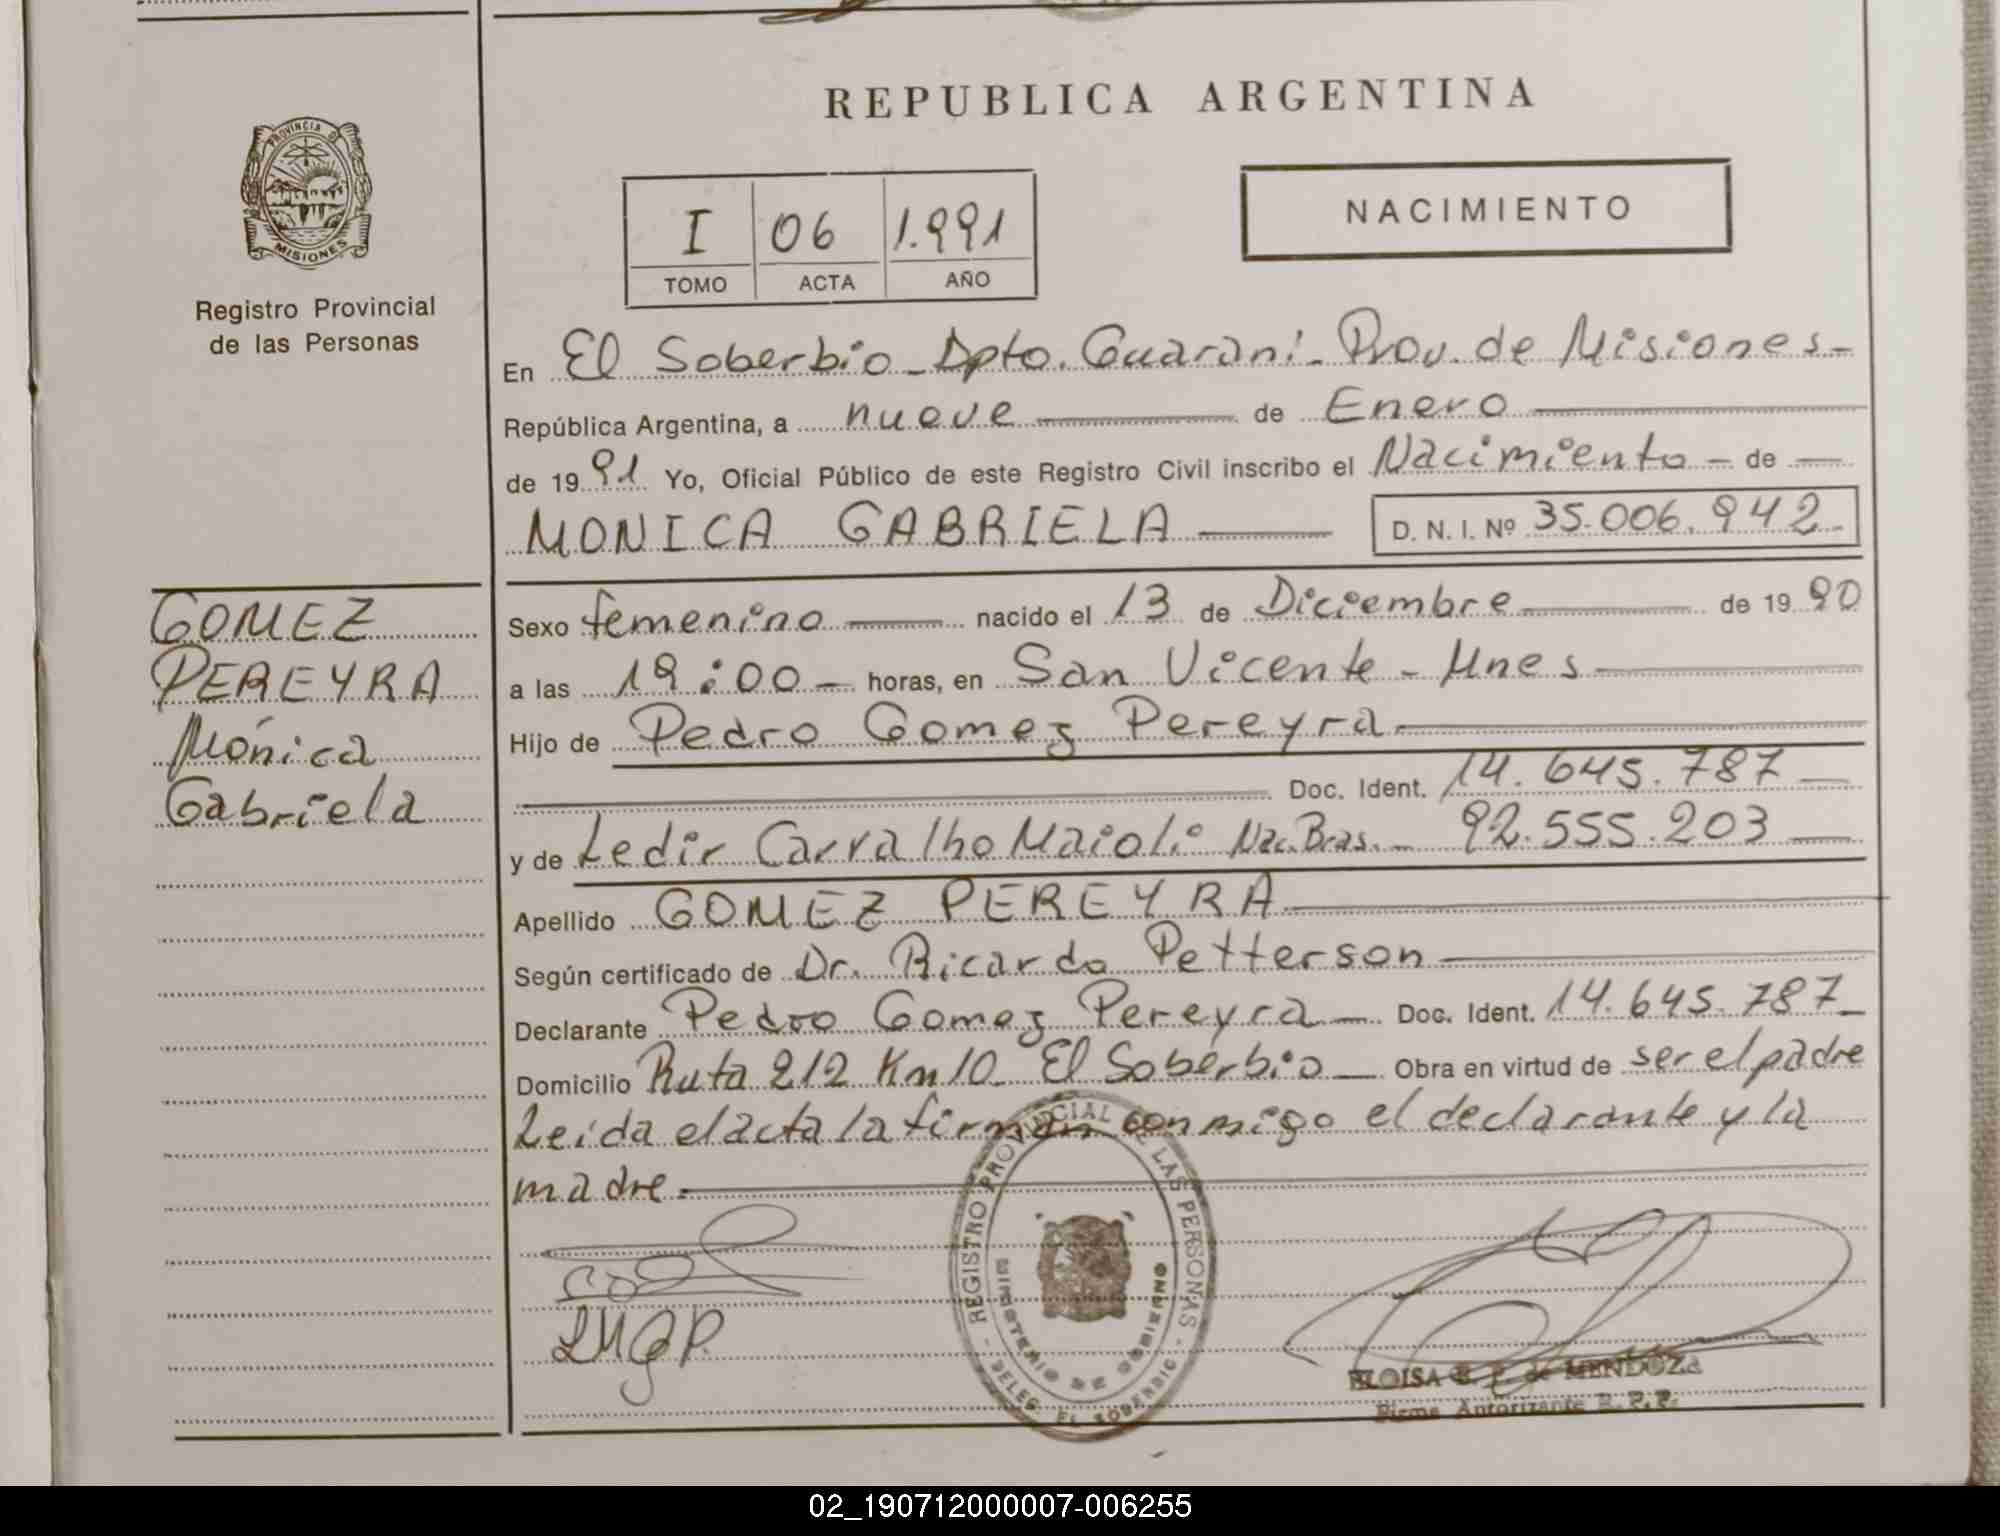 PROVINCIA DE
MISIONES
Registro Provincial
de las Personas
GOMEZ
PEREYRA
Mónica
Gabriela
REPUBLICA ARGENTINA
I 06 1.991
TOMO ACTA AÑO
NACIMIENTO
En El Soberbio - Dpto. Guaraní - Prov. de Misiones -
República Argentina, a nueve de Enero
de 1991 Yo, Oficial Público de este Registro Civil inscribo el Nacimiento - de -
MONICA GABRIELA D. N. I. Nº 35.006.942 -
Sexo femenino nacido el 13 de Diciembre de 1990
a las 19:00 - horas, en San Vicente - Mnes
Hijo de Pedro Gomez Pereyra
Doc. Ident. 14.645.787
y de Ledir Carvalho Maioli Nac. Bras. - 92.555.203
Apellido GOMEZ PEREYRA
Según certificado de Dr. Ricardo Petterson
Declarante Pedro Gomez Pereyra - Doc. Ident. 14.645.787 -
Domicilio Ruta 212 Km 10 El Soberbio - Obra en virtud de ser el padre
Leída el acta la firman conmigo el declarante y la
madre -
REGISTRO PROVINCIAL DE LAS PERSONAS
MINISTERIO DE GOBIERNO
DELEG. EL SOBERBIO
LMGP.
ELOISA de MENDOZA
Firma Autorizante R. P. P.
02_190712000007-006255